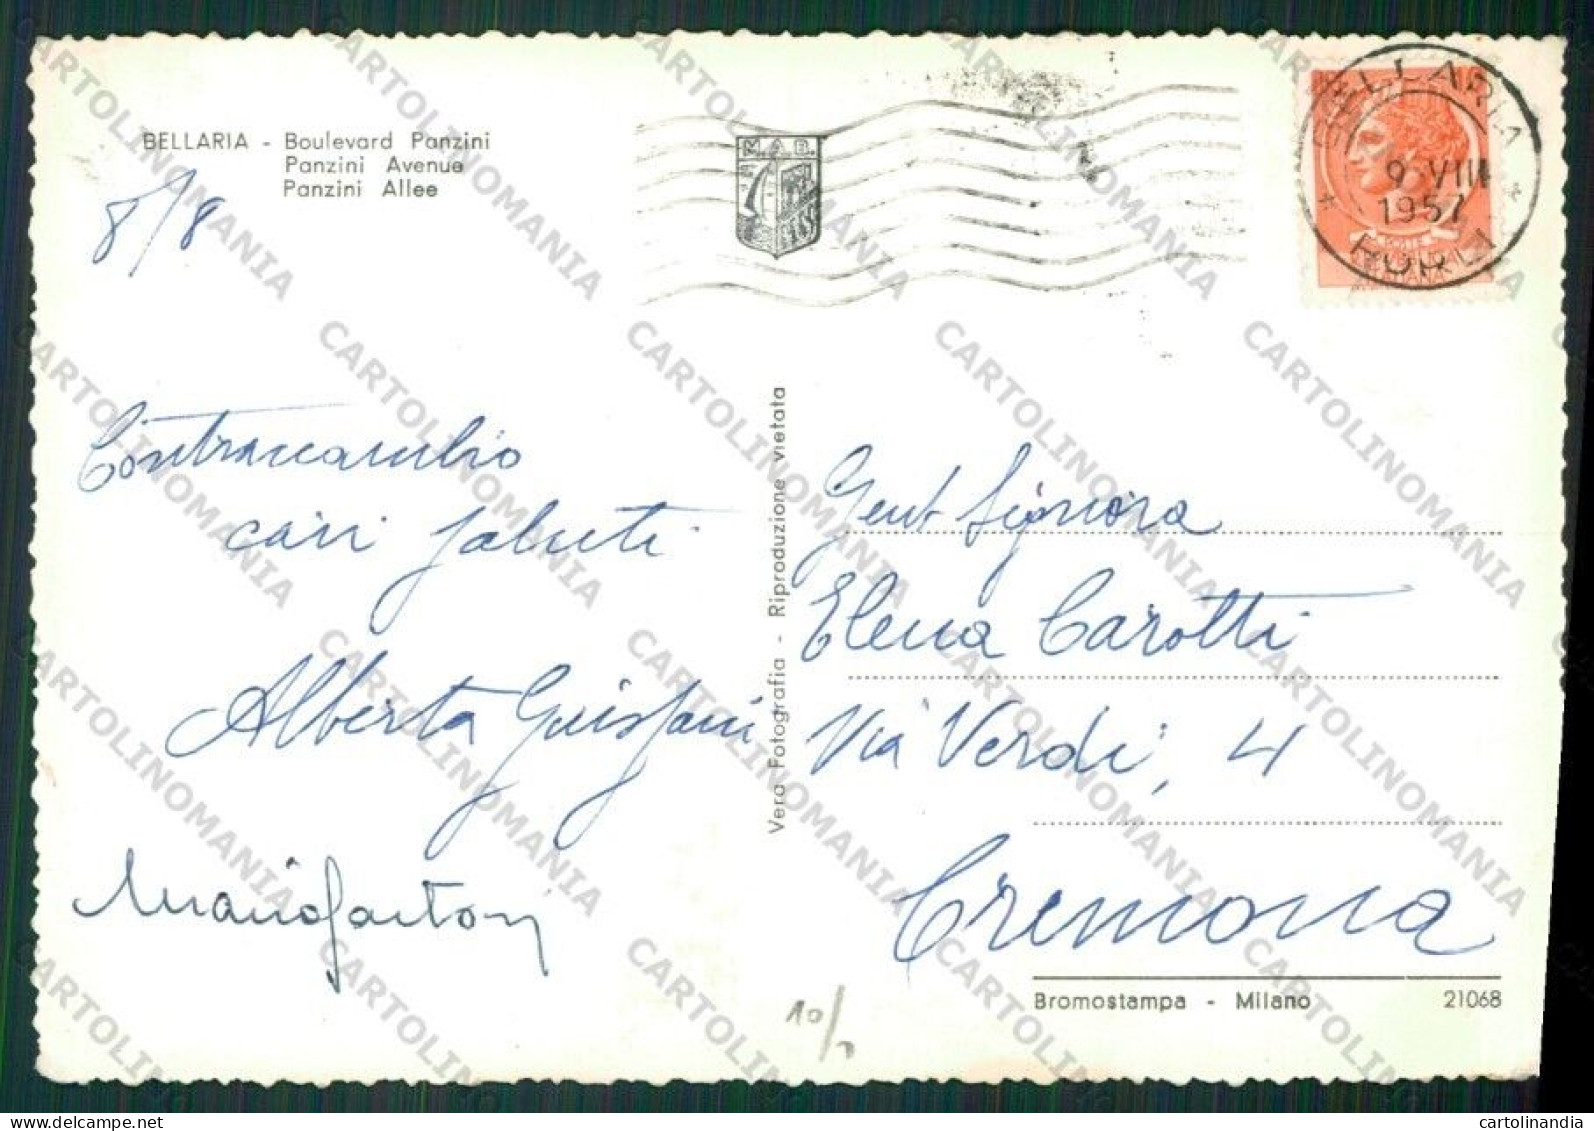 BELLARIA - Boulevard Panzini
Panzini Avenue
Panzini Allee
8/8
M.A.B.
BELLARIA
9 VIII
1957
FORLI
Contraccambio
cari saluti
Alberta
Vera Fotografia - Riproduzione vietata
Gent Signora
Elena Carotti
Via Verdi, 4
Cremona
Bromostampa - Milano 21068
10/
CARTOLINOMANIA
cartolinandia